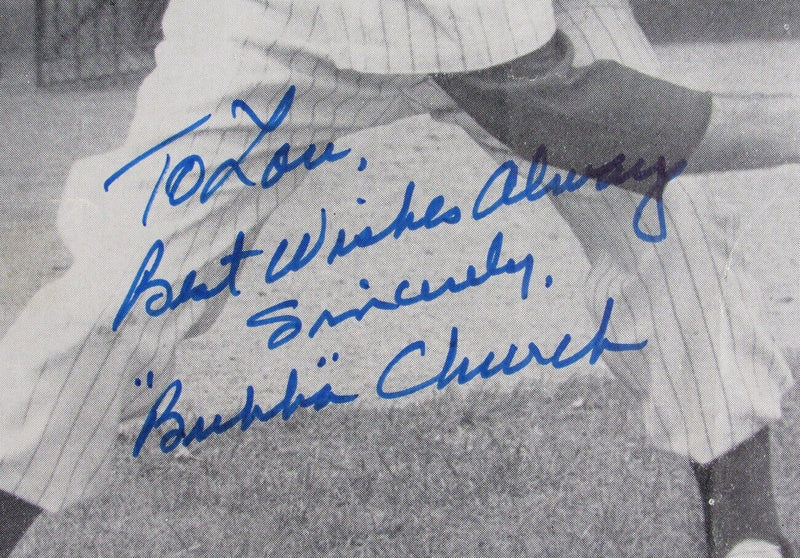 To Lou,
Best Wishes Alway
Sincerely,
"Bubba" Church